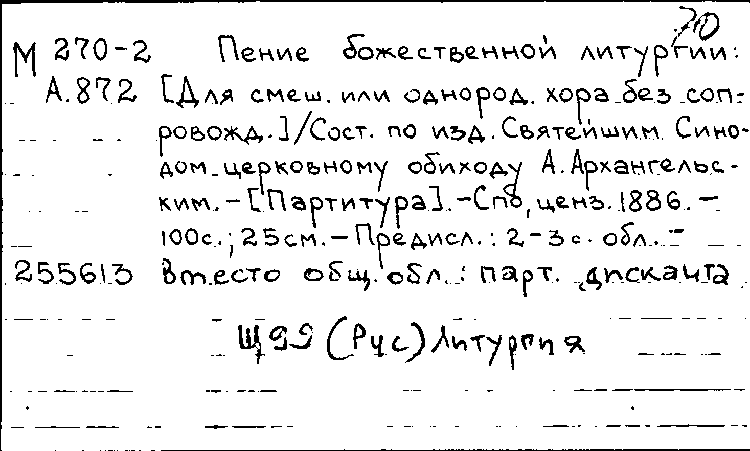 70
М 270-2 Пение божественной литургии:
А.872 [Для смеш. или однород. хора без соп-
ровожд.]/Сост. по изд. Святейшим Сино-
дом церковному обиходу А. Архангельс-
ким.-[Партитура].-Спб, ценз. 1886.-
100с.; 25см.-Предисл.: 2-3с. обл.-
255613 Вместо общ. обл.: парт. дисканта
Щ99 (Рус) Литургия